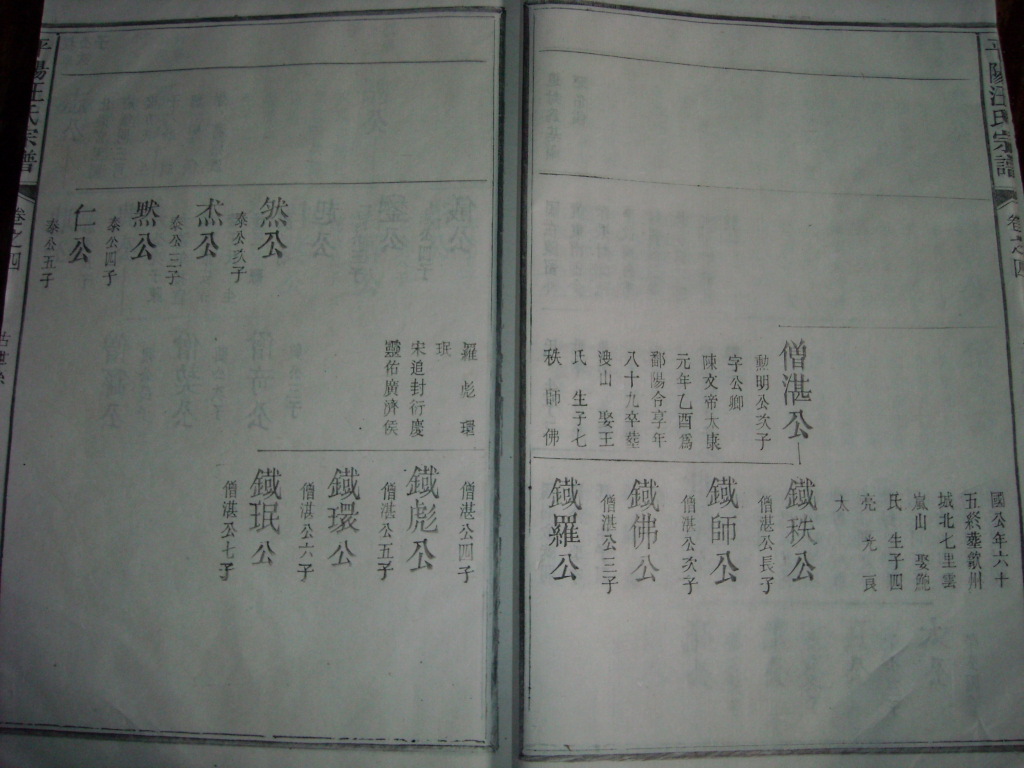 平陽汪氏宗譜
卷之四
國公年六十
五終葬歙州
城北七里雲
嵐山 娶龐
氏 生子四
亮 光 爽
太
僧湛公
勳明公次子
字公卿
陳文帝太康
元年乙酉爲
鄱陽令享年
八十九卒葬
淩山 娶王
氏 生子七
秩 師 佛
羅 彪 環
珉
宋追封衍慶
靈佑廣濟侯
鐵秩公
僧湛公長子
鐵師公
僧湛公次子
鐵佛公
僧湛公三子
鐵羅公
僧湛公四子
鐵彪公
僧湛公五子
鐵環公
僧湛公六子
鐵珉公
僧湛公七子
然公
泰公次子
杰公
泰公三子
黙公
泰公四子
仁公
泰公五子
平陽汪氏宗譜
卷之四